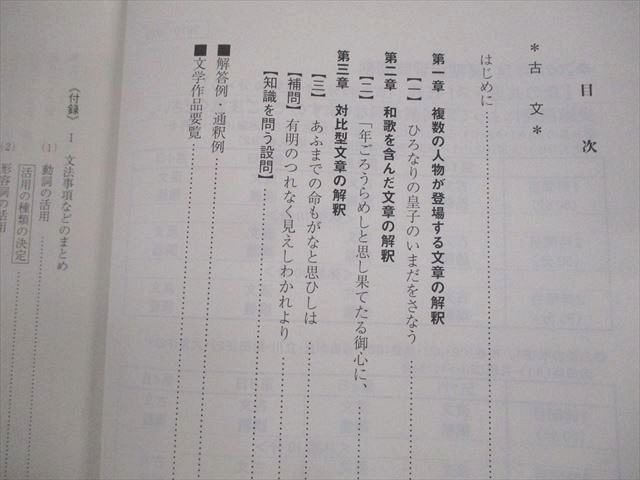 目次
＊古文＊
はじめに
第一章 複数の人物が登場する文章の解釈
【一】 ひろなりの皇子のいまだをさなう
第二章 和歌を含んだ文章の解釈
【二】 「年ごろうらめしと思し果てたる御心に、
第三章 対比型文章の解釈
【三】 あふまでの命もがなと思ひしは
【補問】 有明のつれなく見えしわかれより
【知識を問う設問】
■解答例・通釈例
■文学作品要覧
〈付録〉 Ⅰ 文法事項などのまとめ
(1) 動詞の活用
活用の種類の決定
(2) 形容詞の活用